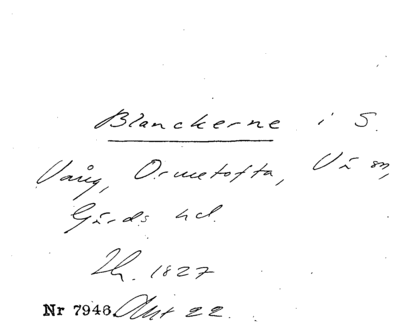 Blanckerne i S.
Vång, Ormetofta, Vå sn,
Gärds hd.
Th. 1827
Nr 7946. Akt 22.